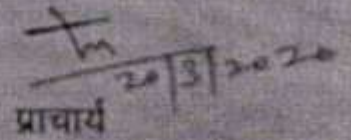 20/3/2020
प्राचार्य